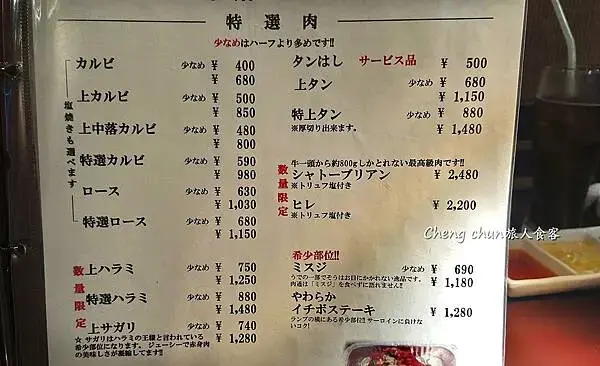 特選肉
少なめはハーフより多めです!!
塩焼きも選べます
カルビ 少なめ ¥ 400
¥ 680
上カルビ 少なめ ¥ 500
¥ 850
上中落カルビ 少なめ ¥ 480
¥ 800
特選カルビ 少なめ ¥ 590
¥ 980
ロース 少なめ ¥ 630
¥ 1,030
特選ロース 少なめ ¥ 680
¥ 1,150
数量限定
上ハラミ 少なめ ¥ 750
¥ 1,250
特選ハラミ 少なめ ¥ 880
¥ 1,480
上サガリ 少なめ ¥ 740
¥ 1,280
☆ サガリはハラミの王様と言われている
希少部位になります。ジューシーで赤身肉
の美味しさが凝縮してます!!
タンはし サービス品 ¥ 500
上タン 少なめ ¥ 680
¥ 1,150
特上タン 少なめ ¥ 880
※厚切り出来ます。 ¥ 1,480
牛一頭から約800gしかとれない最高級肉です!!
数量限定
シャトーブリアン ¥ 2,480
※トリュフ塩付き
ヒレ ¥ 2,200
※トリュフ塩付き
Cheng chun旅人食客
希少部位!!
ミスジ 少なめ ¥ 690
うでの一部でそうはお目にかかれない逸品です。 ¥ 1,180
肉通は「ミスジ」を食べずに語れません!!
やわらか
イチボステーキ ¥ 1,280
ランプの横にある希少部位!! サーロインに負けな
いコク!